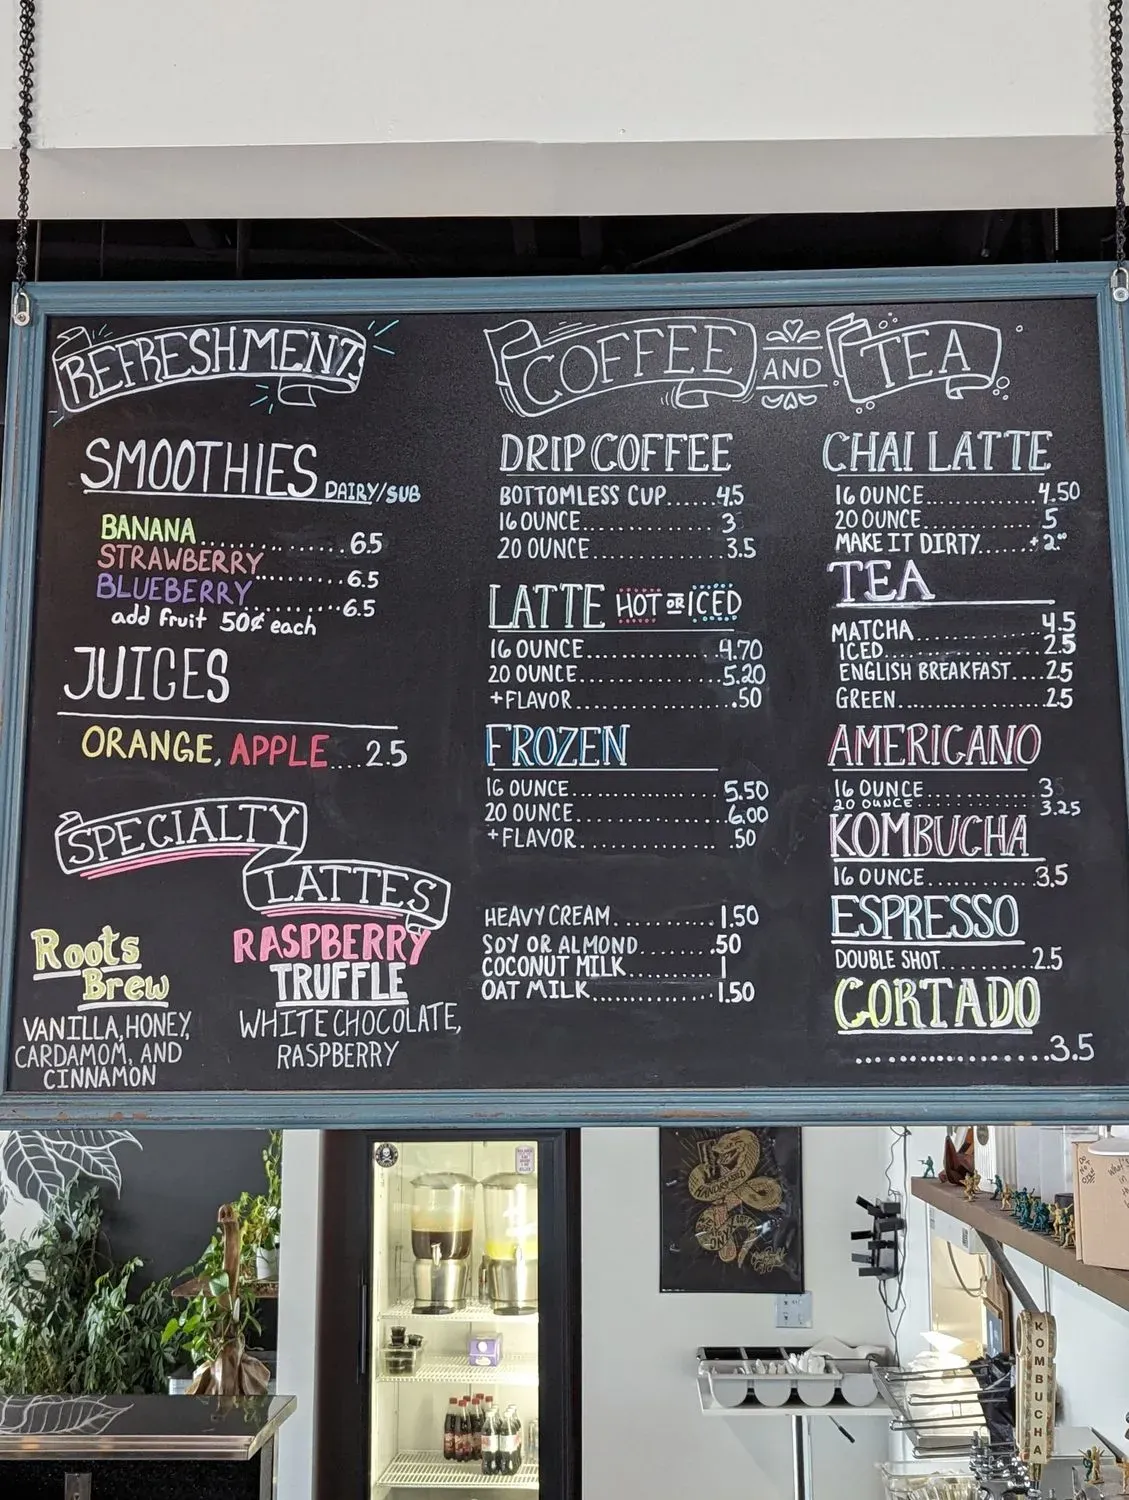 REFRESHMENTS
SMOOTHIES DAIRY/SUB
BANANA..............6.5
STRAWBERRY
BLUEBERRY..........6.5
..........6.5
add fruit 50¢ each
JUICES
ORANGE, APPLE....2.5
SPECIALTY
LATTES
Roots
Brew
VANILLA, HONEY,
CARDAMOM, AND
CINNAMON
RASPBERRY
TRUFFLE
WHITE CHOCOLATE,
RASPBERRY
COFFEE AND TEA
DRIP COFFEE
BOTTOMLESS CUP......4.5
16 OUNCE.................3
20 OUNCE................3.5
LATTE HOT OR ICED
16 OUNCE................4.70
20 OUNCE................5.20
+FLAVOR...................50
FROZEN
16 OUNCE..................5.50
20 OUNCE.................6.00
+FLAVOR...................50
HEAVY CREAM............1.50
SOY OR ALMOND........50
COCONUT MILK...........1
OAT MILK................1.50
CHAI LATTE
16 OUNCE..............4.50
20 OUNCE...............5
MAKE IT DIRTY......+2.00
TEA
MATCHA................4.5
ICED.....................2.5
ENGLISH BREAKFAST....2.5
GREEN...................2.5
AMERICANO
16 OUNCE..............3
20 OUNCE..............3.25
KOMBUCHA
16 OUNCE..............3.5
ESPRESSO
DOUBLE SHOT..........2.5
CORTADO
....................3.5
KOMBUCHA